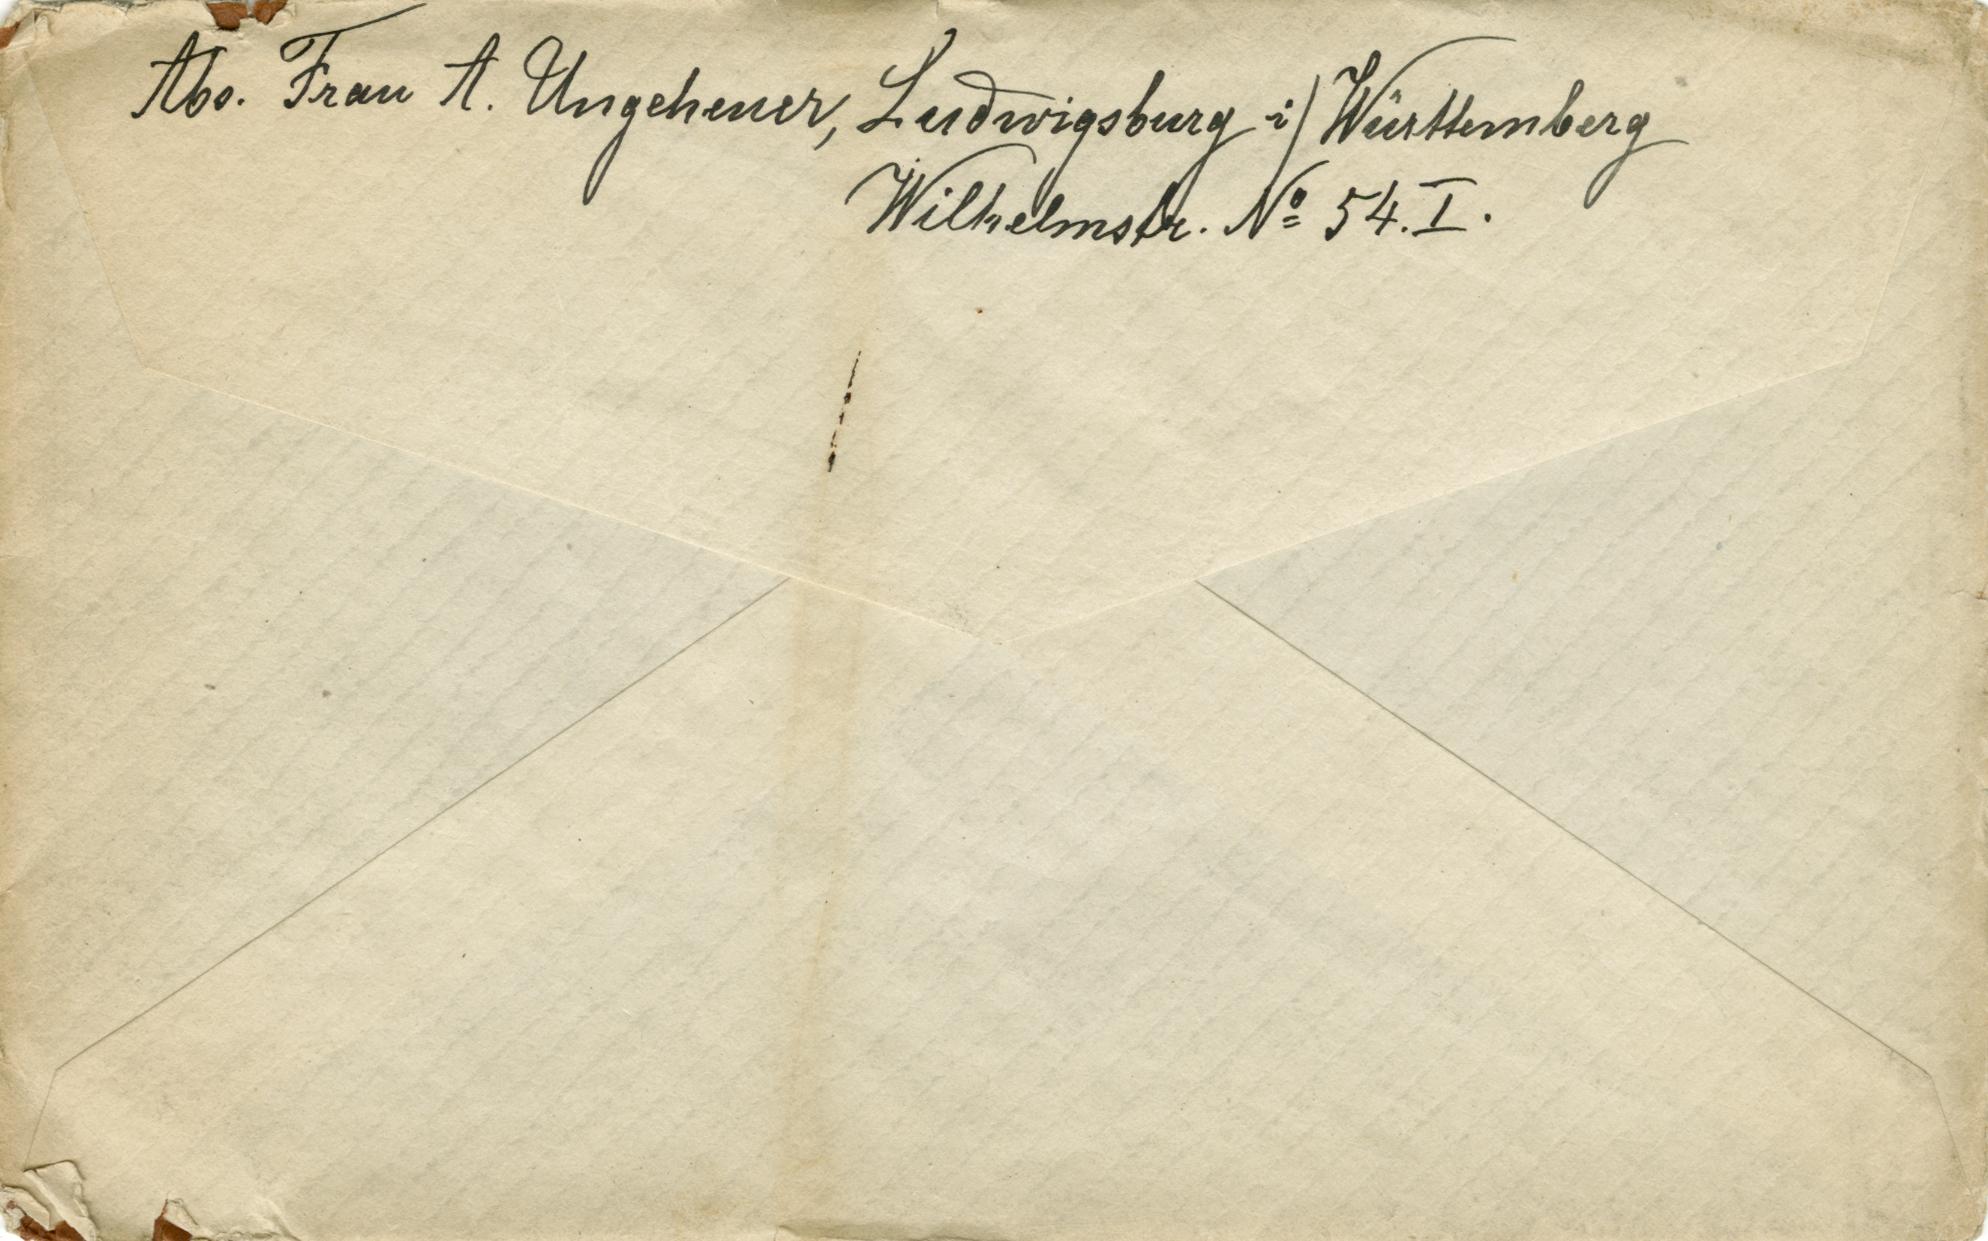 Abs. Frau A. Ungeheuer, Ludwigsburg i/Württemberg
Wilhelmstr. Nº 54.I.